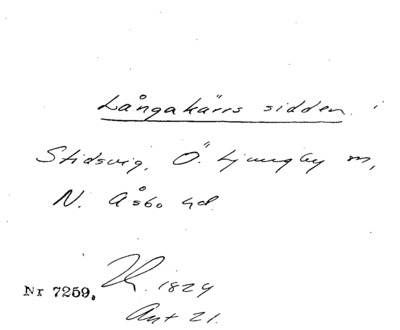 Långakärrs sidden.
Stidsvig, Ö. Ljungby sn,
N. Åsbo hd
Nr 7259. 1829
Ant 21.